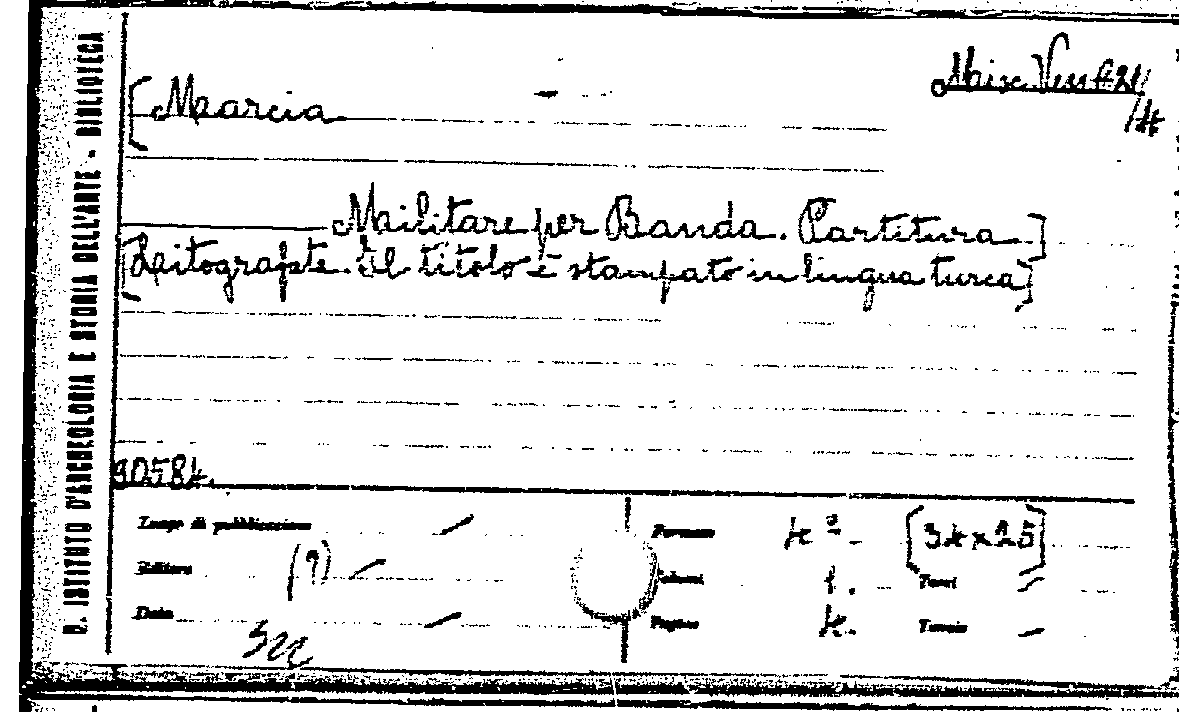 R. ISTITUTO D'ARCHEOLOGIA E STORIA DELL'ARTE - BIBLIOTECA
Misc.
/4
[Marcia
Militare per Banda. Partitura]
[Litografte. Il titolo è stampato in lingua turca]
90584.
Luogo di pubblicazione —
Editore (?) —
Data —
Formato 4° - [34x25]
Volumi 1. - Tomi —
Pagine 4. Tavole —